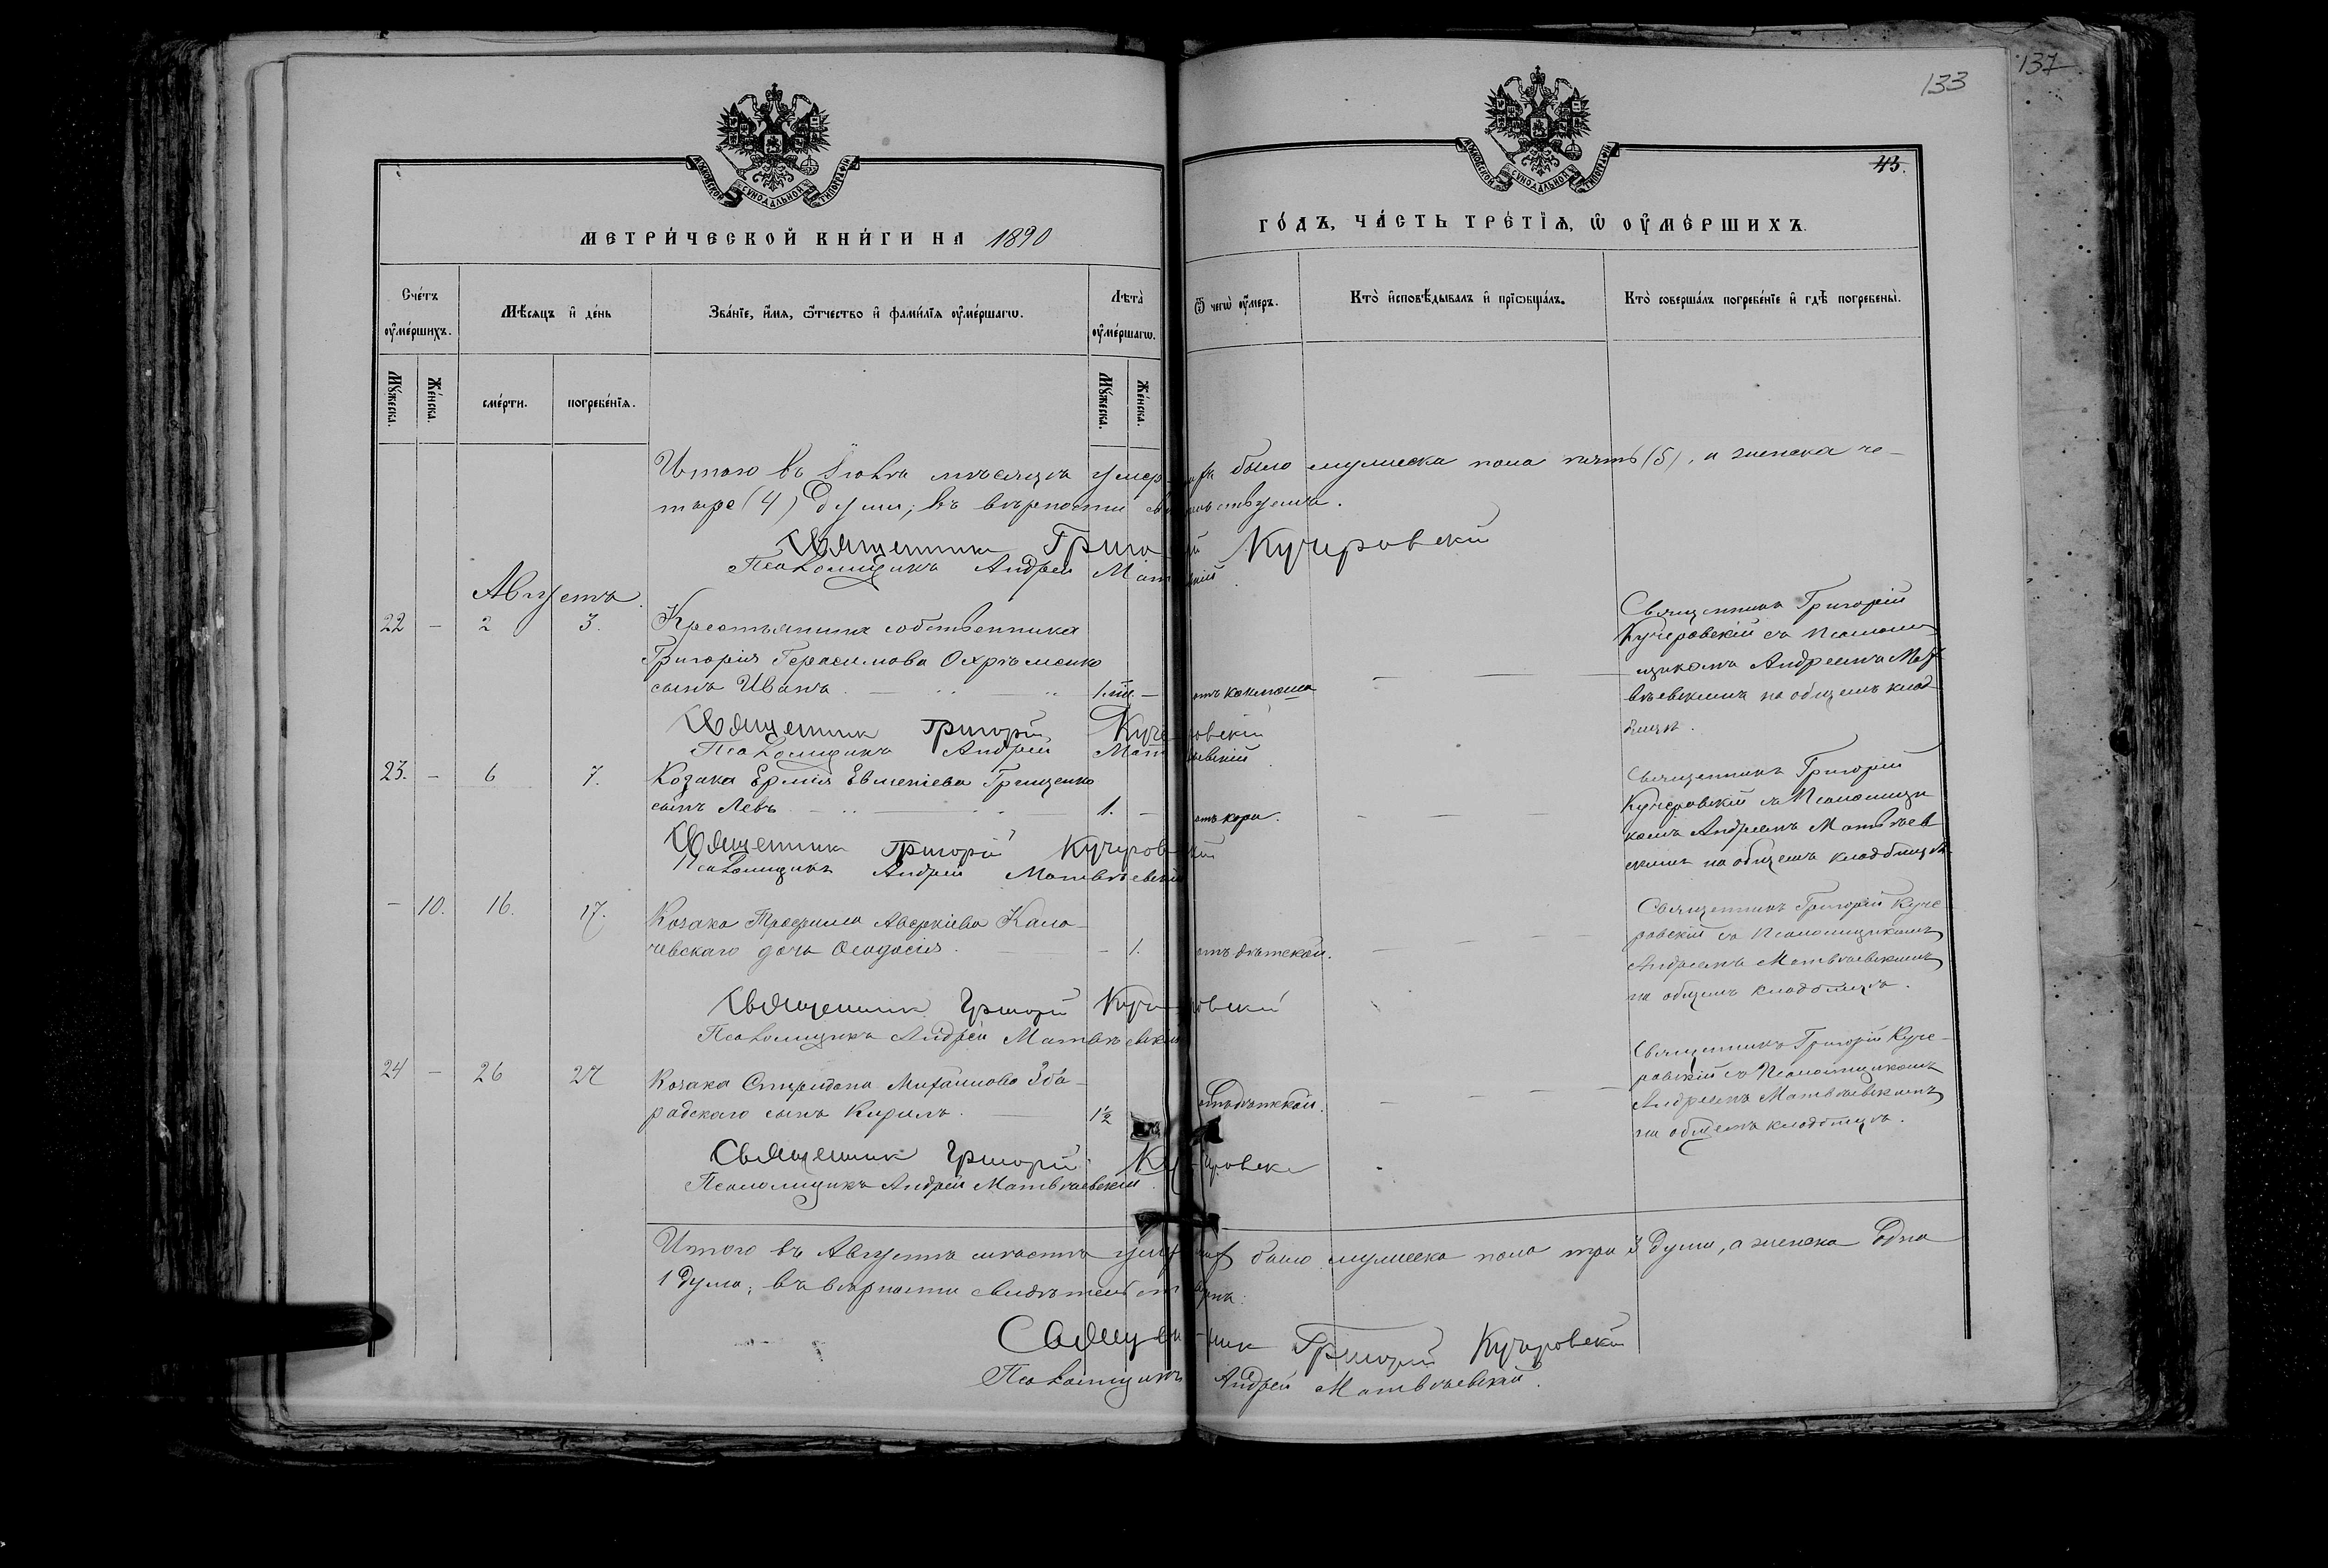 133
137
МОСКОВСКОЙ СѴНОДАЛЬНОЙ ТИПОГРАФІИ
МОСКОВСКОЙ СѴНОДАЛЬНОЙ ТИПОГРАФІИ
43.
МЕТРИ́ЧЕСКОЙ КНИ́ГИ НА 1890
ГО́ДЪ, ЧА́СТЬ ТРЕ́ТІѦ, Ѡ ОУМЕ́РШИХЪ.
Сче́тъ оуме́ршихъ.
Мѣ́сяцъ и де́нь
Зва́нїе, и́мя, ѿтчество и фами́лїя оуме́ршагѡ.
Лѣта̀ оуме́ршагѡ.
Ѿ чегѡ̀ оу́меръ.
Кто̀ исповѣ́дывалъ и прїѡбща́лъ.
Кто̀ соверша́лъ погребе́нїе и гдѣ̀ погребены̀.
Мꙋ́жеска.
Же́нска.
сме́рти.
погребе́нїя.
Мꙋ́жеска.
Же́нска.
Итого въ Іюлѣ мѣсяцѣ умер было мужеска пола пять (5), а женска че-
тыре (4) души; въ вѣрности
Священник Григорій Кучеровскій
Псаломщикъ Андрей
Августъ.
22 — 2 3. Крестьянина собственника
Григорія Герасимова Охрѣменко
сынъ Иванъ
—
Священникъ Григорій
Кучеровскій съ Псалом
щикомъ Андреемъ Мат
вѣевскимъ на общемъ клад
бищѣ.
Священник Григорій Кучеровскій
Псаломщикъ Андрей Матвѣевскій
23. — 6 7. Козака Ермія Евменіева Грищенко
сынъ Левъ 1. — отъ кори.
Священникъ Григорій
Кучеровскій съ Псаломщи
комъ Андреемъ Матвѣев
скимъ на общемъ кладбищѣ
Священник Григорій Кучеровскій
Псаломщикъ Андрей Матвѣевскій
— 10. 16. 17. Козака Аверкіева Кало-
чевскаго дочь Ѳеодосія — 1. отъ дѣтской.
Священникъ Григорій Куче
ровскій съ Псаломщикомъ
Андреемъ Матвѣевскимъ
на общемъ кладбищѣ.
Священник Григорій Кучеровскій
Псаломщикъ Андрей Матвѣевскій
24 — 26 27 Козака Спиридона Михаилова Зба-
радскаго сынъ Кирилъ. 1½ отъ дѣтской.
Священникъ Григорій Куче-
ровскій съ Псаломщикомъ
Андреемъ Матвѣевскимъ
на общемъ кладбищѣ.
Священник Григорій Кучеровскій
Псаломщикъ Андрей Матвѣевскій
Итого въ Августѣ было мужеска пола три 3 души, а женска одна
1 душа; въ вѣрности
Священник Григорій Кучеровскій
Псаломщикъ Андрей Матвѣевскій.